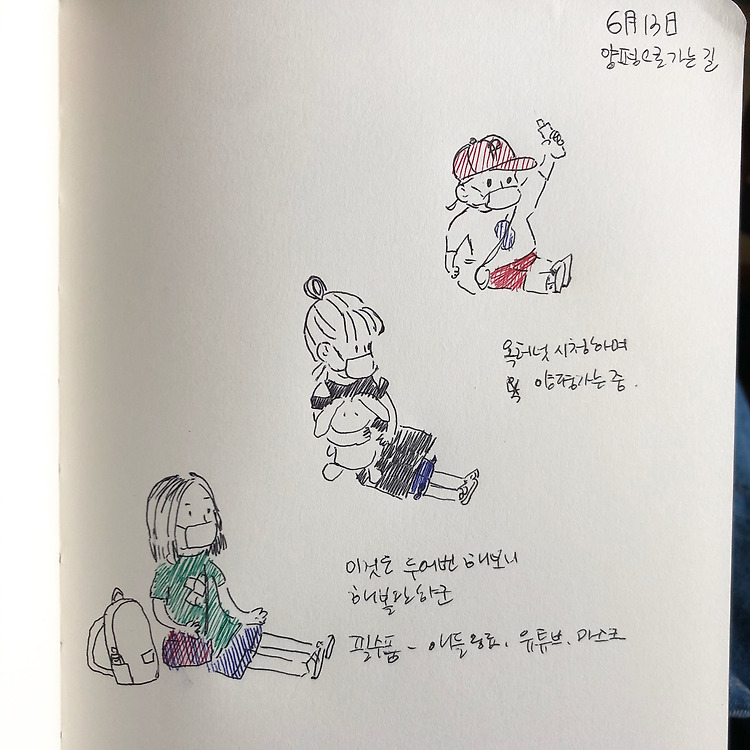 6月13日
양평으로 가는 길
옥터넛 시청하며
양평가는 중.
이것도 두어번 해보니
해볼만하군
필수품 - 애들음료, 유튜브, 마스크